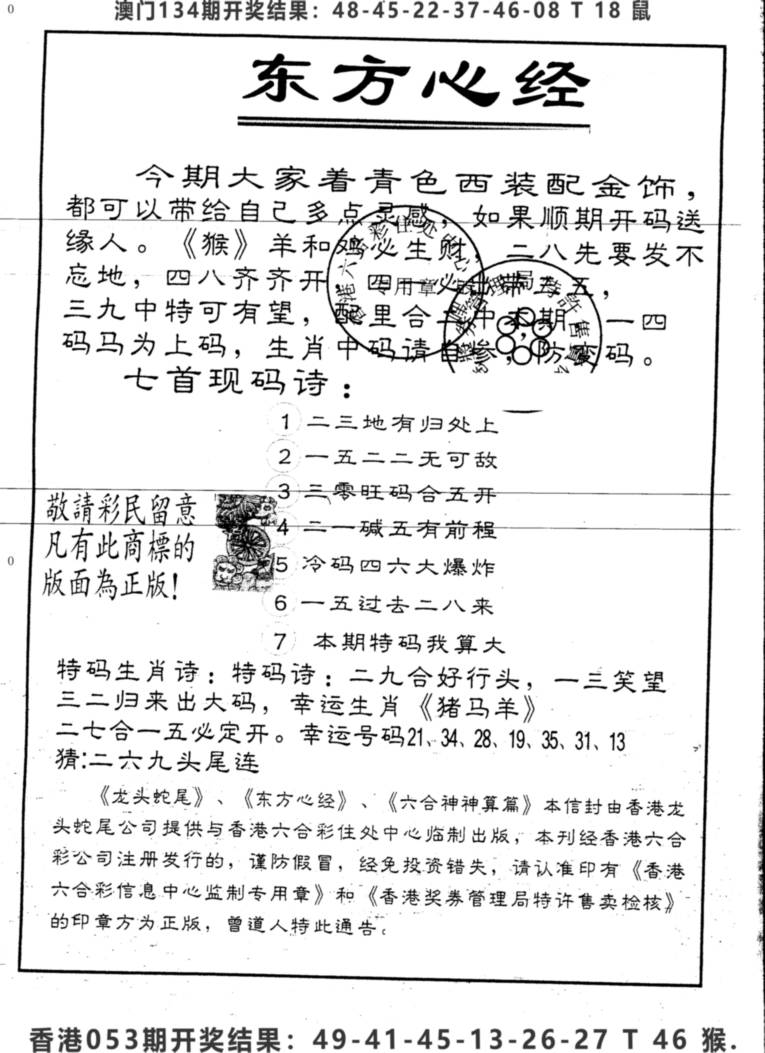 澳门134期开奖结果：48-45-22-37-46-08 T 18 鼠
东方心经
今期大家着青色西装配金饰，
都可以带给自己多点灵感，如果顺期开码送
缘人。《猴》羊和鸡必生财，二八先要发不
忘地，四八齐齐开，四一必出带五五，
三九中特可有望，配里合二中本期，一四
码马为上码，生肖中码请自参，防变码。
七首现码诗：
1 二三地有归处上
2 一五二二无可敌
3 三零旺码合五开
4 二一碱五有前程
5 冷码四六大爆炸
6 一五过去二八来
7 本期特码我算大
敬請彩民留意
凡有此商標的
版面為正版！
特码生肖诗：特码诗：二九合好行头，一三笑望
三二归来出大码，幸运生肖《猪马羊》
二七合一五必定开。幸运号码21、34、28、19、35、31、13
猜:二六九头尾连
《龙头蛇尾》、《东方心经》、《六合神神算篇》本信封由香港龙
头蛇尾公司提供与香港六合彩住处中心临制出版，本刊经香港六合
彩公司注册发行的，谨防假冒，经免投资错失，请认准印有《香港
六合彩信息中心监制专用章》和《香港奖券管理局特许售卖检核》
的印章方为正版，曾道人特此通告。
香港053期开奖结果：49-41-45-13-26-27 T 46 猴.